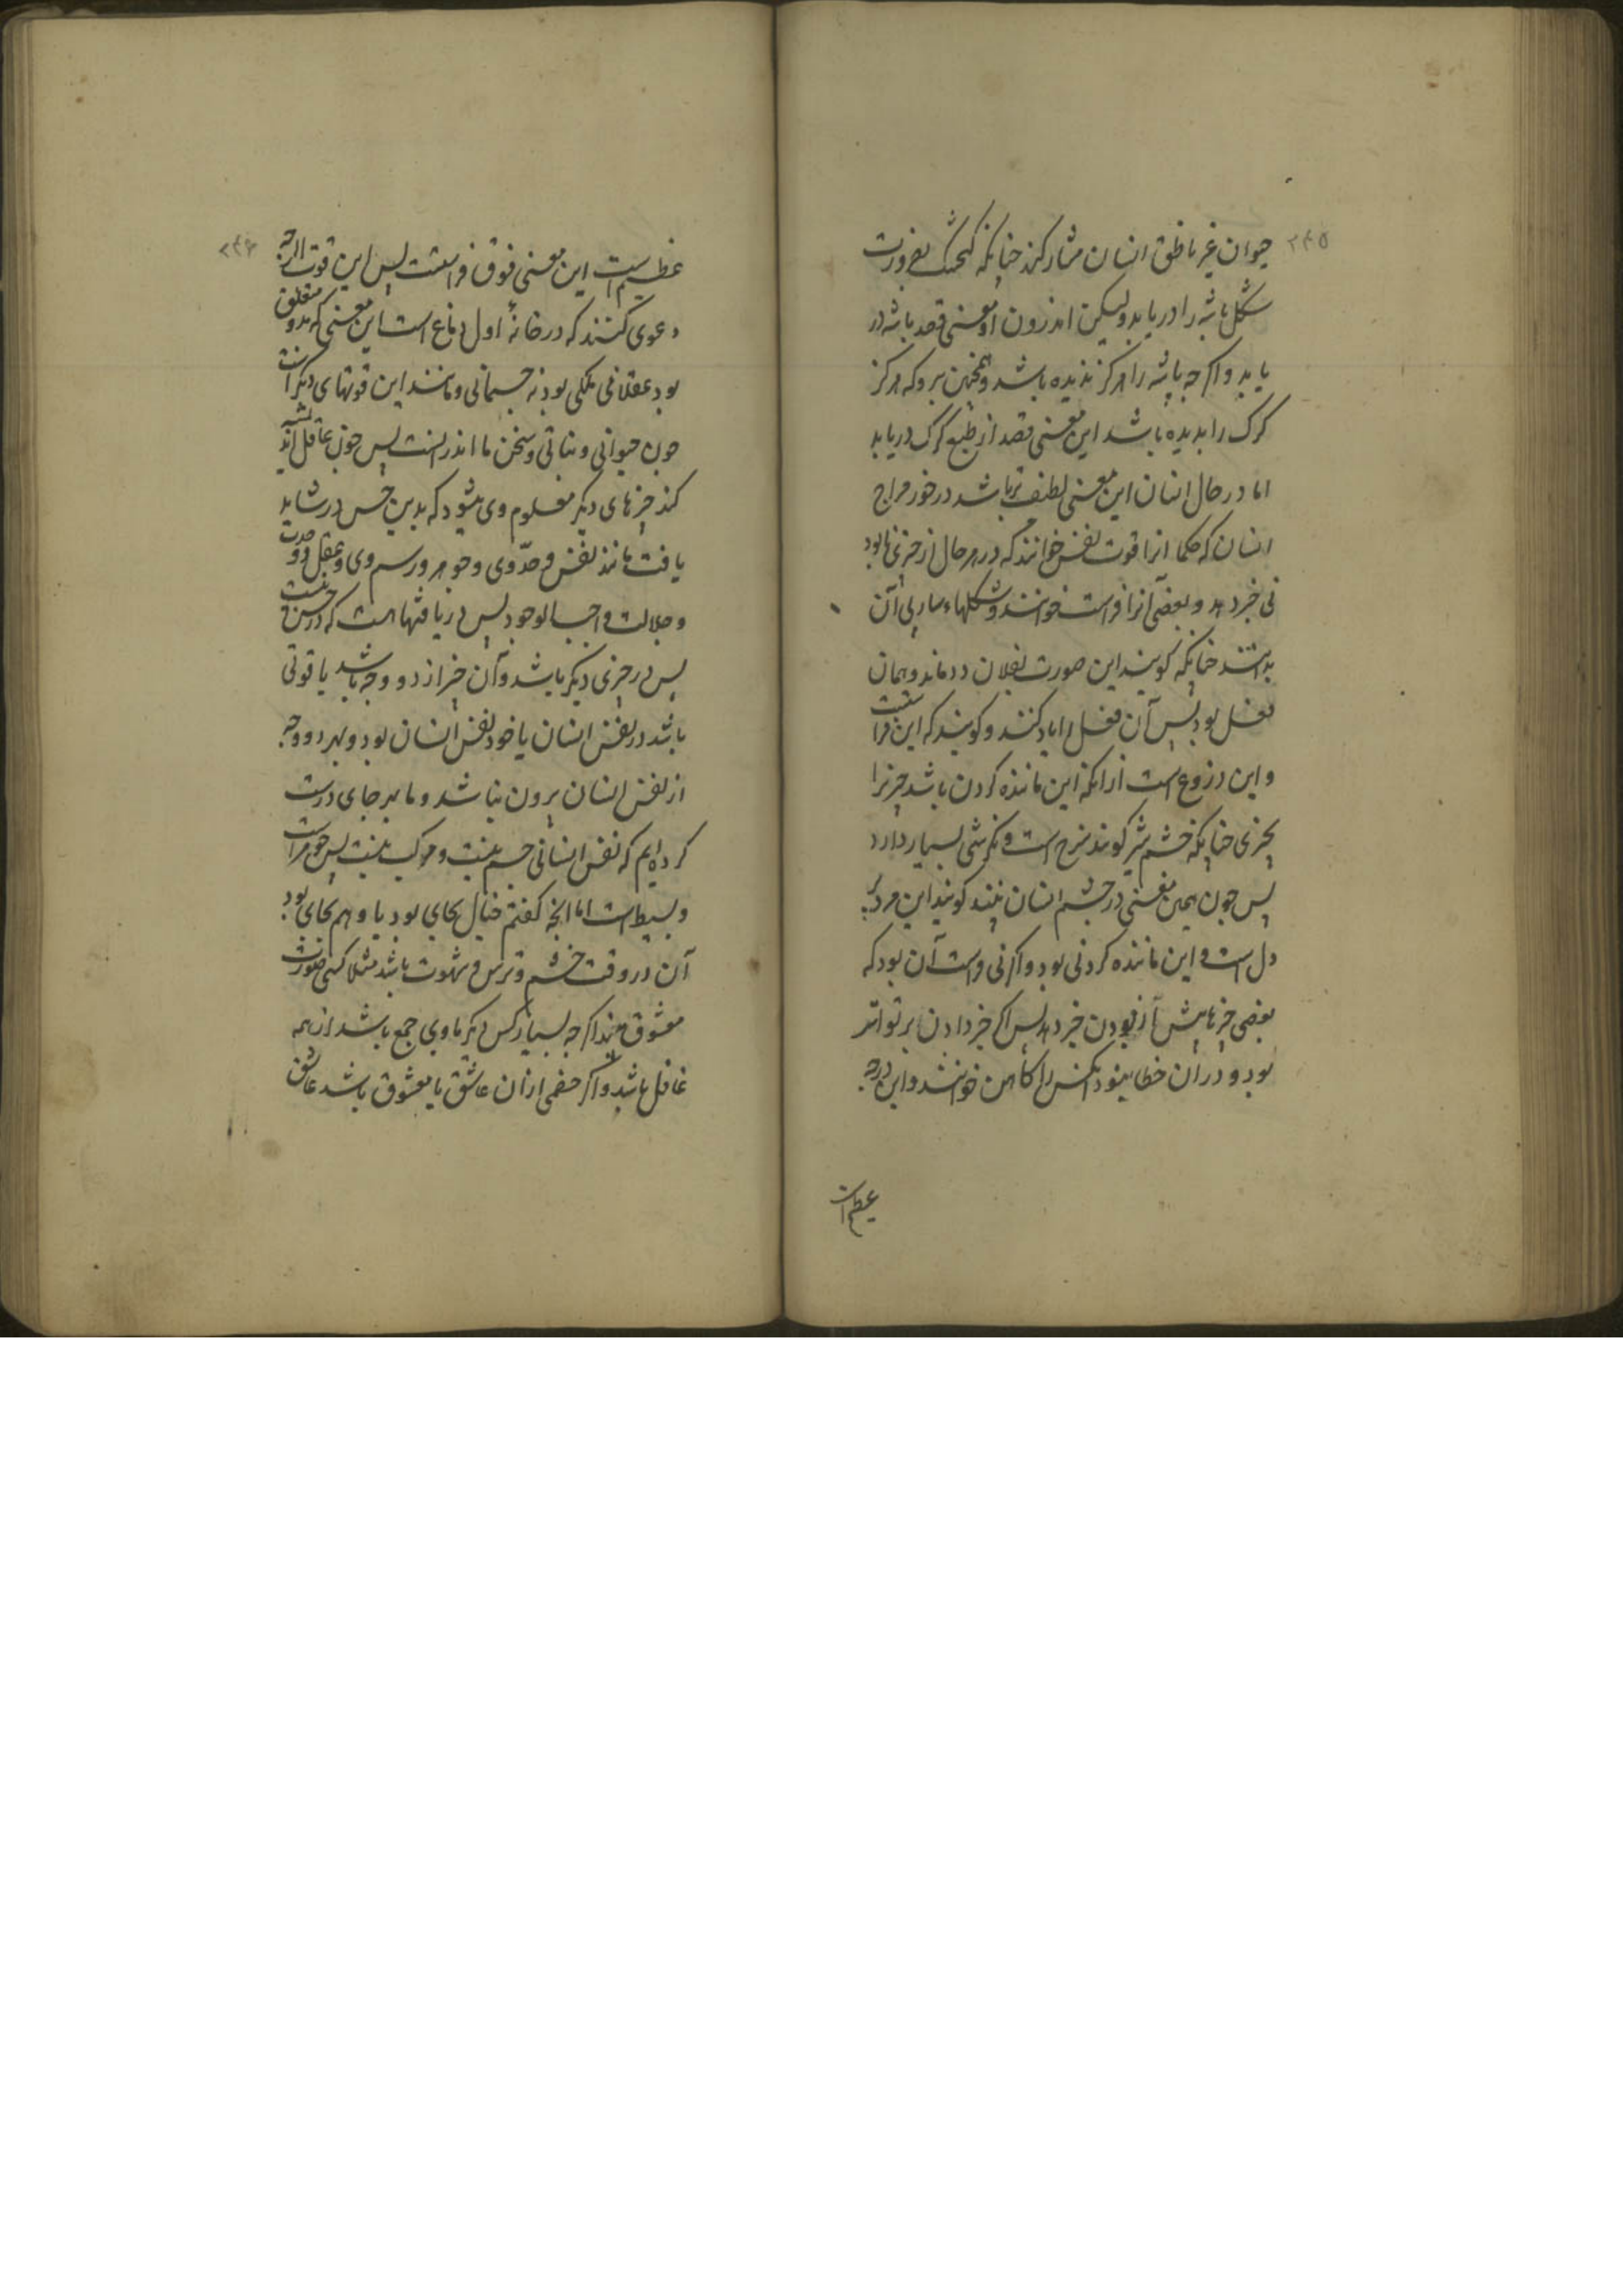 ۲۴۵
حیوان غیر ناطق انسان مشارکند چنانکه کنجشک بضرورت
شکل باشه را دریابد ولیکن اندرون او معنی قصد باشه در
یابد واکرچه باشه را هرکز ندیده باشد وهمچنین بره که هرکز
کرک را ندیده باشد این معنی قصد از طبع کرک دریابد
اما در حال انسان این معنی لطیف تر باشد درخور مزاج
انسان که حکما آنرا قوت نفس خوانند که در هر حال از چیزی نابود
نی خبر دهد و بعضی آنرا فراست خوانند وشکلهاء آن
بدانند چنانکه کویند این صورت بفلان دد ماند وهمان
فعل بود پس آن فعل را یاد کنند وکویند که این فراستست
واین دروغ است ازانکه این ماننده کردن باشد چیزیرا
بچیزی چنانکه چشم شیر کویند سرخ است ونکرشی بسیار دارد
پس چون همین معنی در چشم انسان بینند کویند این مرد پر
دل است و این ماننده کردنی بود واکر نی فراست آن بود که
بعضی چیزها پیش از بودن خبر دهد پس اکر خبر دادن بر تواتر
بود و دران خطا نبود آنکس را کاهن خوانند واین درجه
عظیم است
۲۴۶
عظیم است این معنی فوق فراستست پس این قوت را ارچه
دعوی کنند که در خانهٔ اول دماغ است این معنی که بدو متعلق
بود عقلانی ملکی بود نه جسمانی ومانند این قوتهای دیکر است
چون حیوانی و نباتی وسخن ما اندر انست پس چون عاقل اندیشه
کند چیزهای دیکر معلوم وی شود که بدین حس در نشاید
یافت مانند نفس و حدّ وی وجوهر ورسم وی وعقل ووحدت
وجلالت واجب الوجود پس دریافتها است که در حس نیست
پس در چیزی دیکر باشد وآن چیز از دو وجه باشد یا قوتی
باشد در نفس انسان یا خود نفس انسان بود وبهر دو وجه
از نفس انسان بیرون نباشد وما بهر جای درست
کرده ایم که نفس انسانی جسم نیست ومرکب نیست پس جوهر است
وبسیط است اما آنچه کفتم خیال بجای بود یا وهم بجای بود
آن در وقت خشم وترس وشهوت باشد مثلا کسی صورت
معشوق بیند اکرچه بسیار کس دیکر با وی جمع باشد از همه
غافل باشد واکر خصمی ازان عاشق با معشوق باشد عاشق